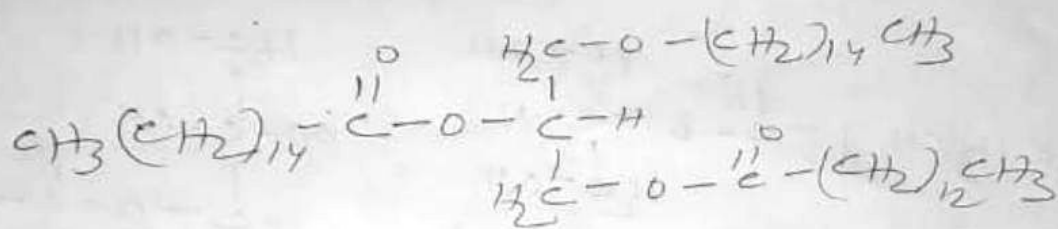 O H2C-O-(CH2)14 CH3
||  |
CH3(CH2)14-C-O-C-H O
| ||
H2C-O-C-(CH2)12CH3